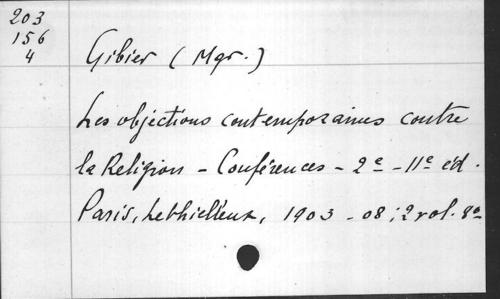 203
156
4
Gibier (Mgr.)
Les objections contemporaines contre
la Religion - Conférences - 2e - 11e éd.
Paris, Lethielleux, 1903 - 08; 2 vol. 8o